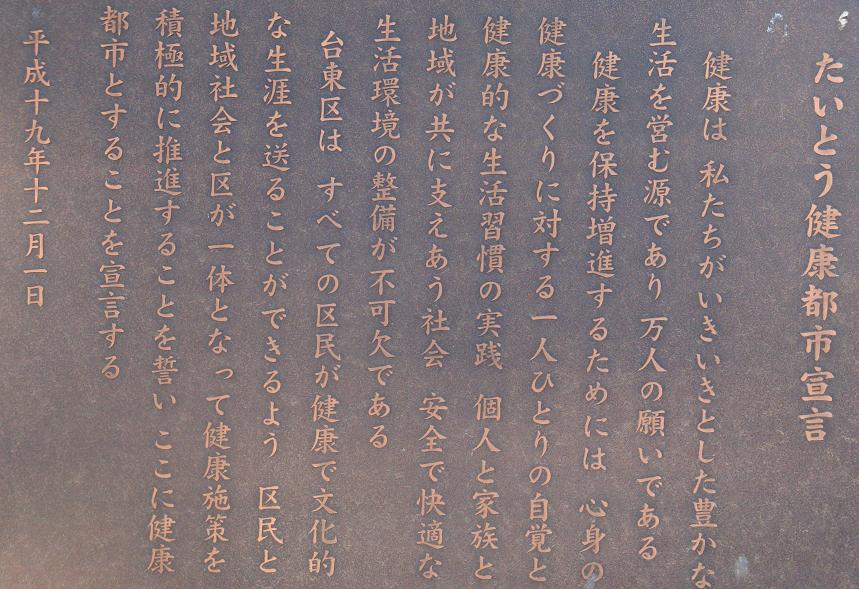 たいとう健康都市宣言
健康は 私たちがいきいきとした豊かな
生活を営む源であり 万人の願いである
健康を保持増進するためには 心身の
健康づくりに対する一人ひとりの自覚と
健康的な生活習慣の実践 個人と家族と
地域が共に支えあう社会 安全で快適な
生活環境の整備が不可欠である
台東区は すべての区民が健康で文化的
な生涯を送ることができるよう 区民と
地域社会と区が一体となって健康施策を
積極的に推進することを誓い ここに健康
都市とすることを宣言する
平成十九年十二月一日